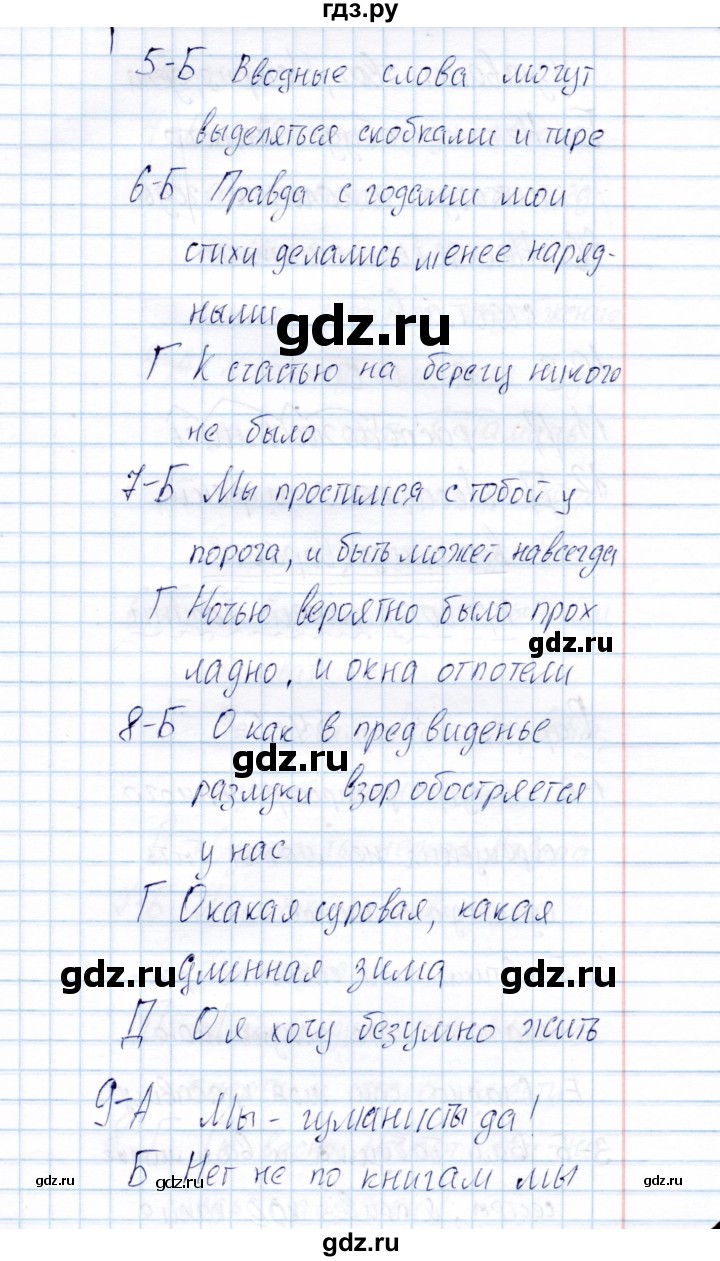 гдз.ру
5-Б Вводные слова могут
выделяться скобками и тире
6-Б Правда с годами мои
стихи делались менее наряд-
ными
gdz.ru
Г К счастью на берегу никого
не было
7-Б Мы простимся с тобой у
порога, и быть может навсегда
Г Ночью вероятно было прох
gdz.ru
ладно, и окна отпотели
8-Б О как в предвиденье
gdz.ru
разлуки взор обостряется
у нас
Г О какая суровая, какая
gdz.ru длинная зима gdz.ru
Д О я хочу безумно жить
9-А Мы - гуманисты да!
gdz.ru Б Нет не по книгам мы gdz.ru
gdz.ru
gdz.ru